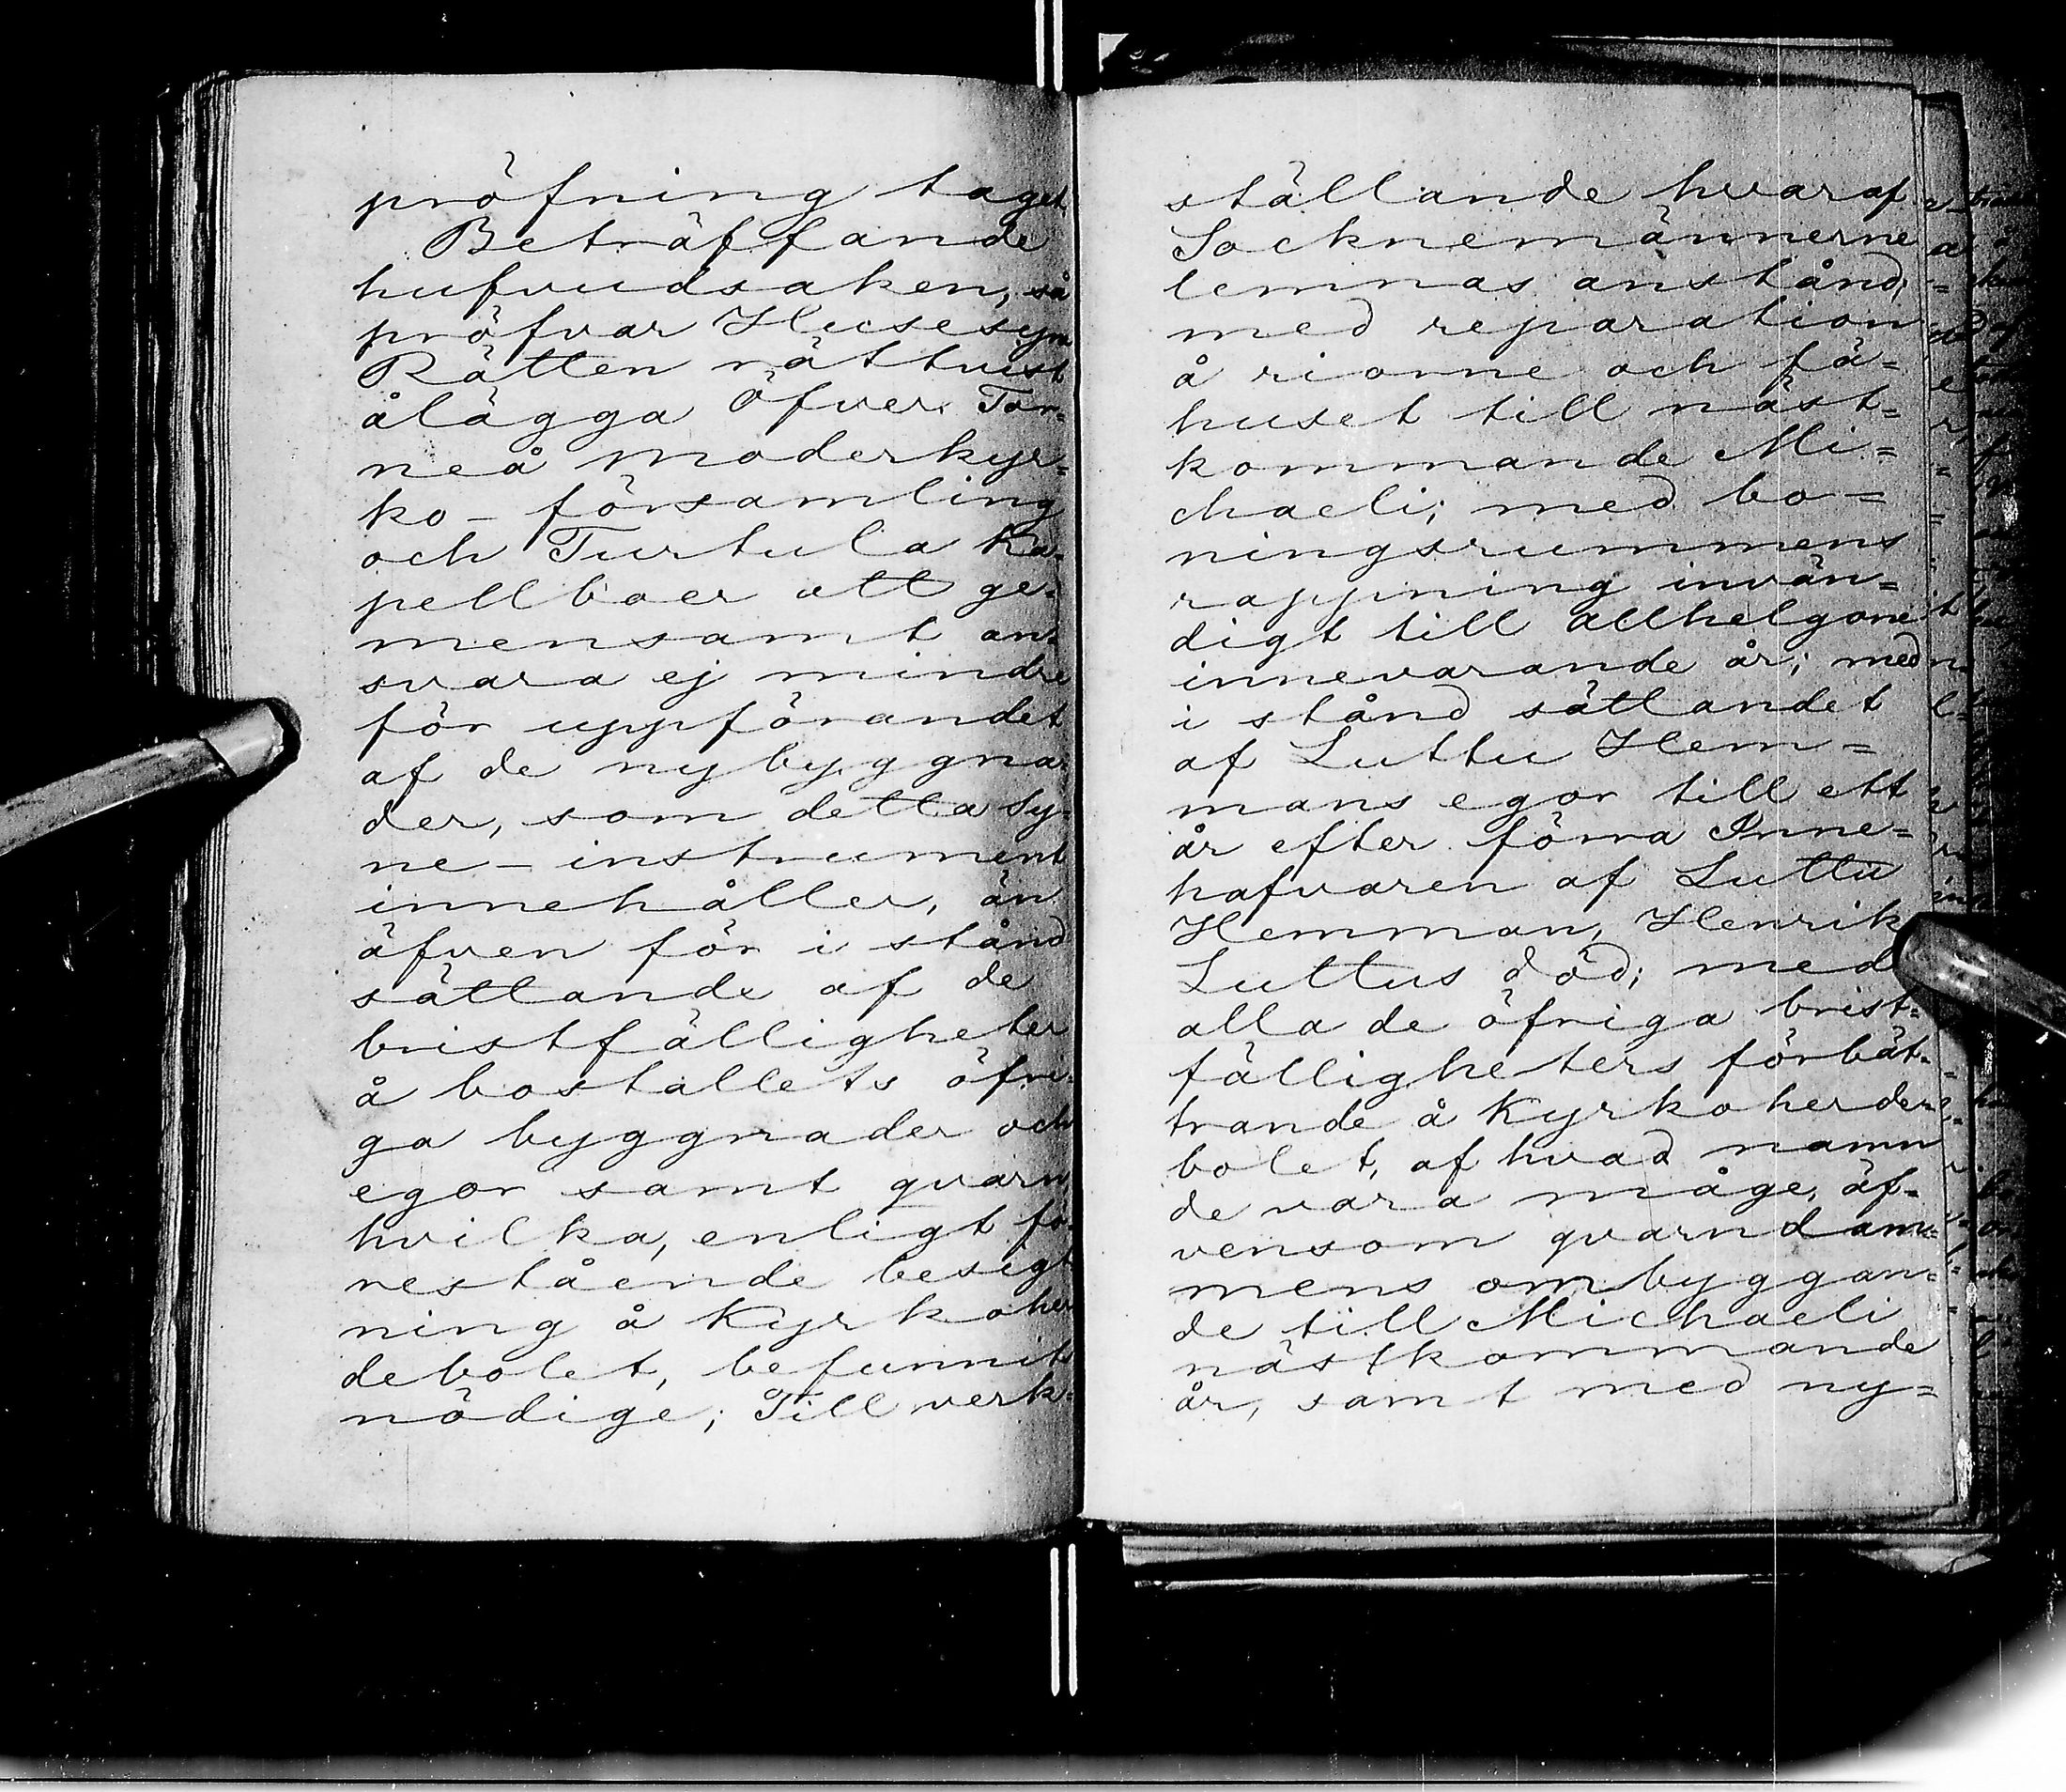 pröfning taget.
Beträffande
hufvudsaken, så
pröfvar Husesyns
Rätten rättvist
ålägga Öfver Tor-
neå moderkyr-
ko-församling
och Turtula Ka-
pellboer att ge-
mensamt an-
svara ej mindre
för uppförandet
af de nybyggna-
der, som detta Sy-
ne-instrument
innehåller, än
äfven för i stånd
sättande af de
bristfälligheter
å boställets öfri-
ga byggnader och
egor samt qvarn,
hvilka, enligt fö-
restående besigt-
ning å Kyrkoher-
debolet, befunnits
nödige; Till verk-
ställande hvaraf
Socknemännerne
lemnas anstånd,
med reparation
å rionne och fä-
huset till näst-
kommande Mi-
chaeli; med bo-
ningsrummens
rappning invän-
digt till Allhelgone
innevarande år; med
i stånd sättandet
af Luttu Hem-
mans egor till ett
år efter förra Inne-
hafvaren af Luttu
Hemman, Henrik
Luttus död; med
alla de öfriga brist-
fälligheters förbät-
trande å Kyrkoherde-
bolet, af hvad namn
de vara måge, äf-
vensom qvarndam-
mens ombyggan-
de till Michaeli
nästkommande
år, samt med ny-